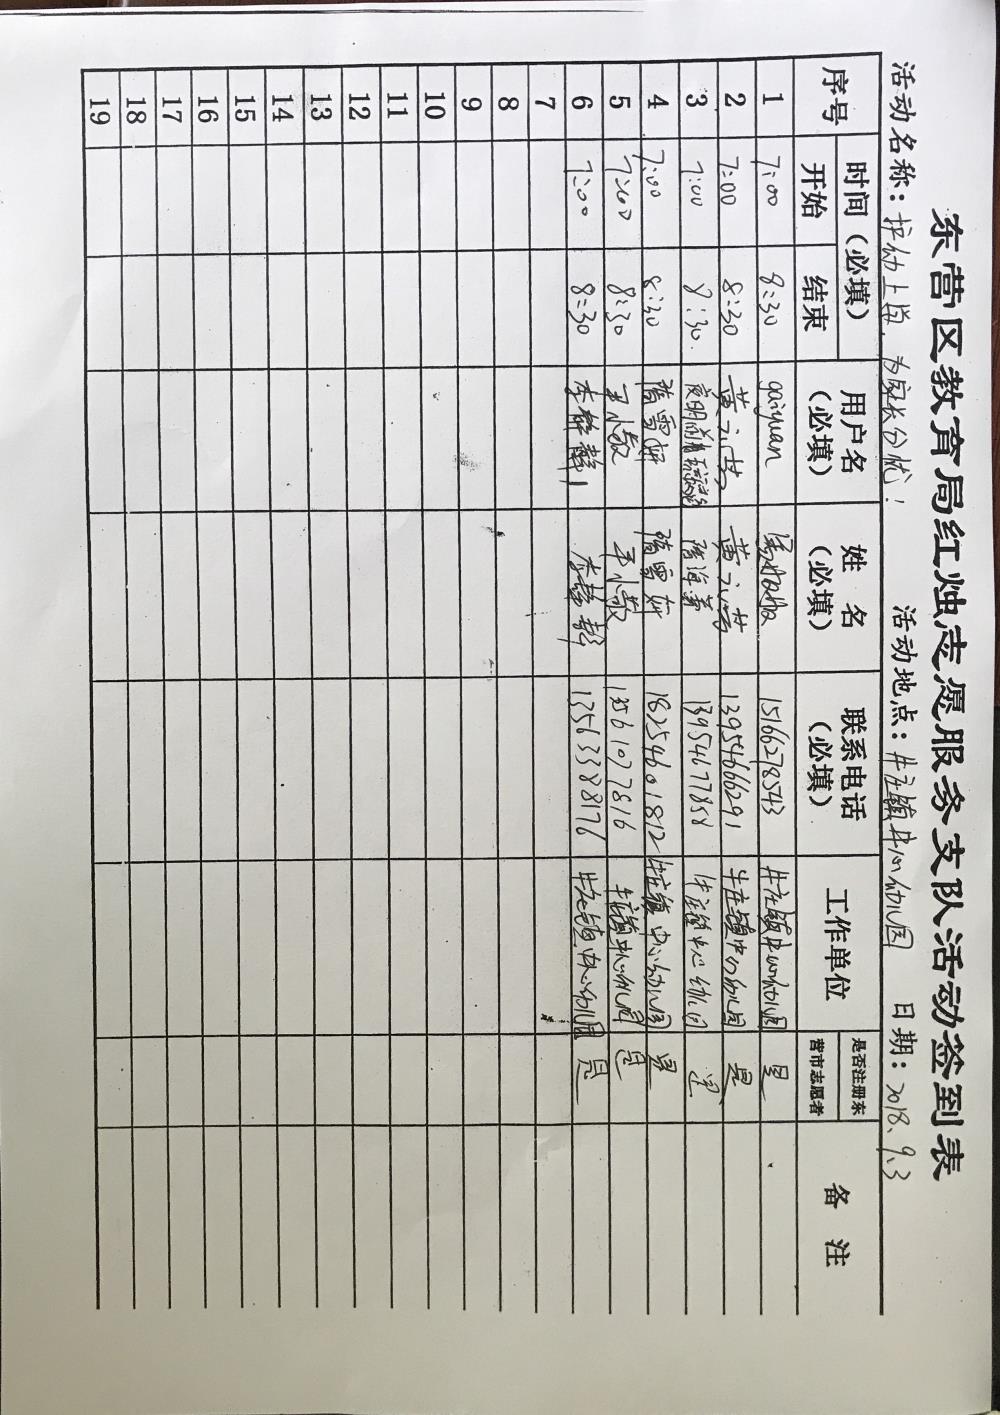 东营区教育局红烛志愿服务支队活动签到表
活动名称：护幼上岗，为家长分忧！ 活动地点：牛庄镇中心幼儿园 日期：2018、9、3
序号 时间（必填） 用户名（必填） 姓名（必填） 联系电话（必填） 工作单位 是否注册东营市志愿者 备注
开始 结束
1 7:00 8:30 gaiyuan 15166278543 牛庄镇中心幼儿园 是
2 7:00 8:30 黄 13954666291 牛庄镇中心幼儿园 是
3 7:00 8:30. 隋海 13954677858 牛庄镇中心幼儿园 是
4 7:00 8:30 隋雪妍 隋雪妍 18254601812 牛庄镇中心幼儿园 是
5 7:00 8:30 王小敬 王小敬 13561077816 牛庄镇中心幼儿园 是
6 7:00 8:30 李静静1 李静静 13563388176 牛庄镇中心幼儿园 是
7
8
9
10
11
12
13
14
15
16
17
18
19